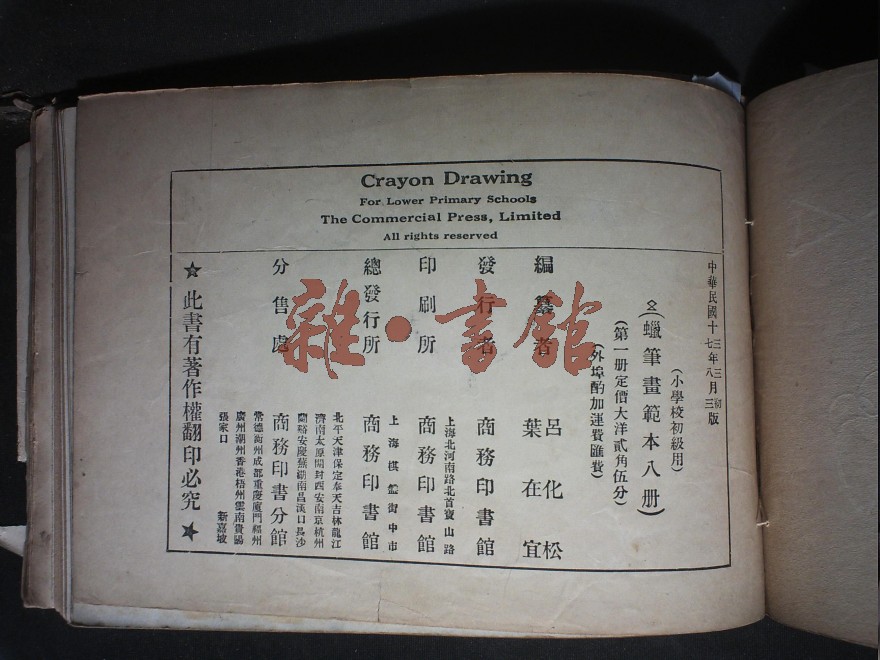 Crayon Drawing
For Lower Primary Schools
The Commercial Press, Limited
All rights reserved
中華民國十三年三月初版
七年八月三版
(小學校初級用)
(蠟筆畫範本八册)
(第一册定價大洋貳角伍分)
(外埠酌加運費匯費)
編纂者 呂化松
葉在宜
發行者 商務印書館
上海北河南路北首寶山路
印刷所 商務印書館
上海棋盤街中市
總發行所 商務印書館
北平天津保定奉天吉林龍江
濟南太原開封西安南京杭州
蘭谿安慶蕪湖南昌漢口長沙
分售處 商務印書分館
常德衡州成都重慶廈門福州
廣州潮州香港梧州雲南貴陽
張家口 新嘉坡
★此書有著作權翻印必究★
雜·書館